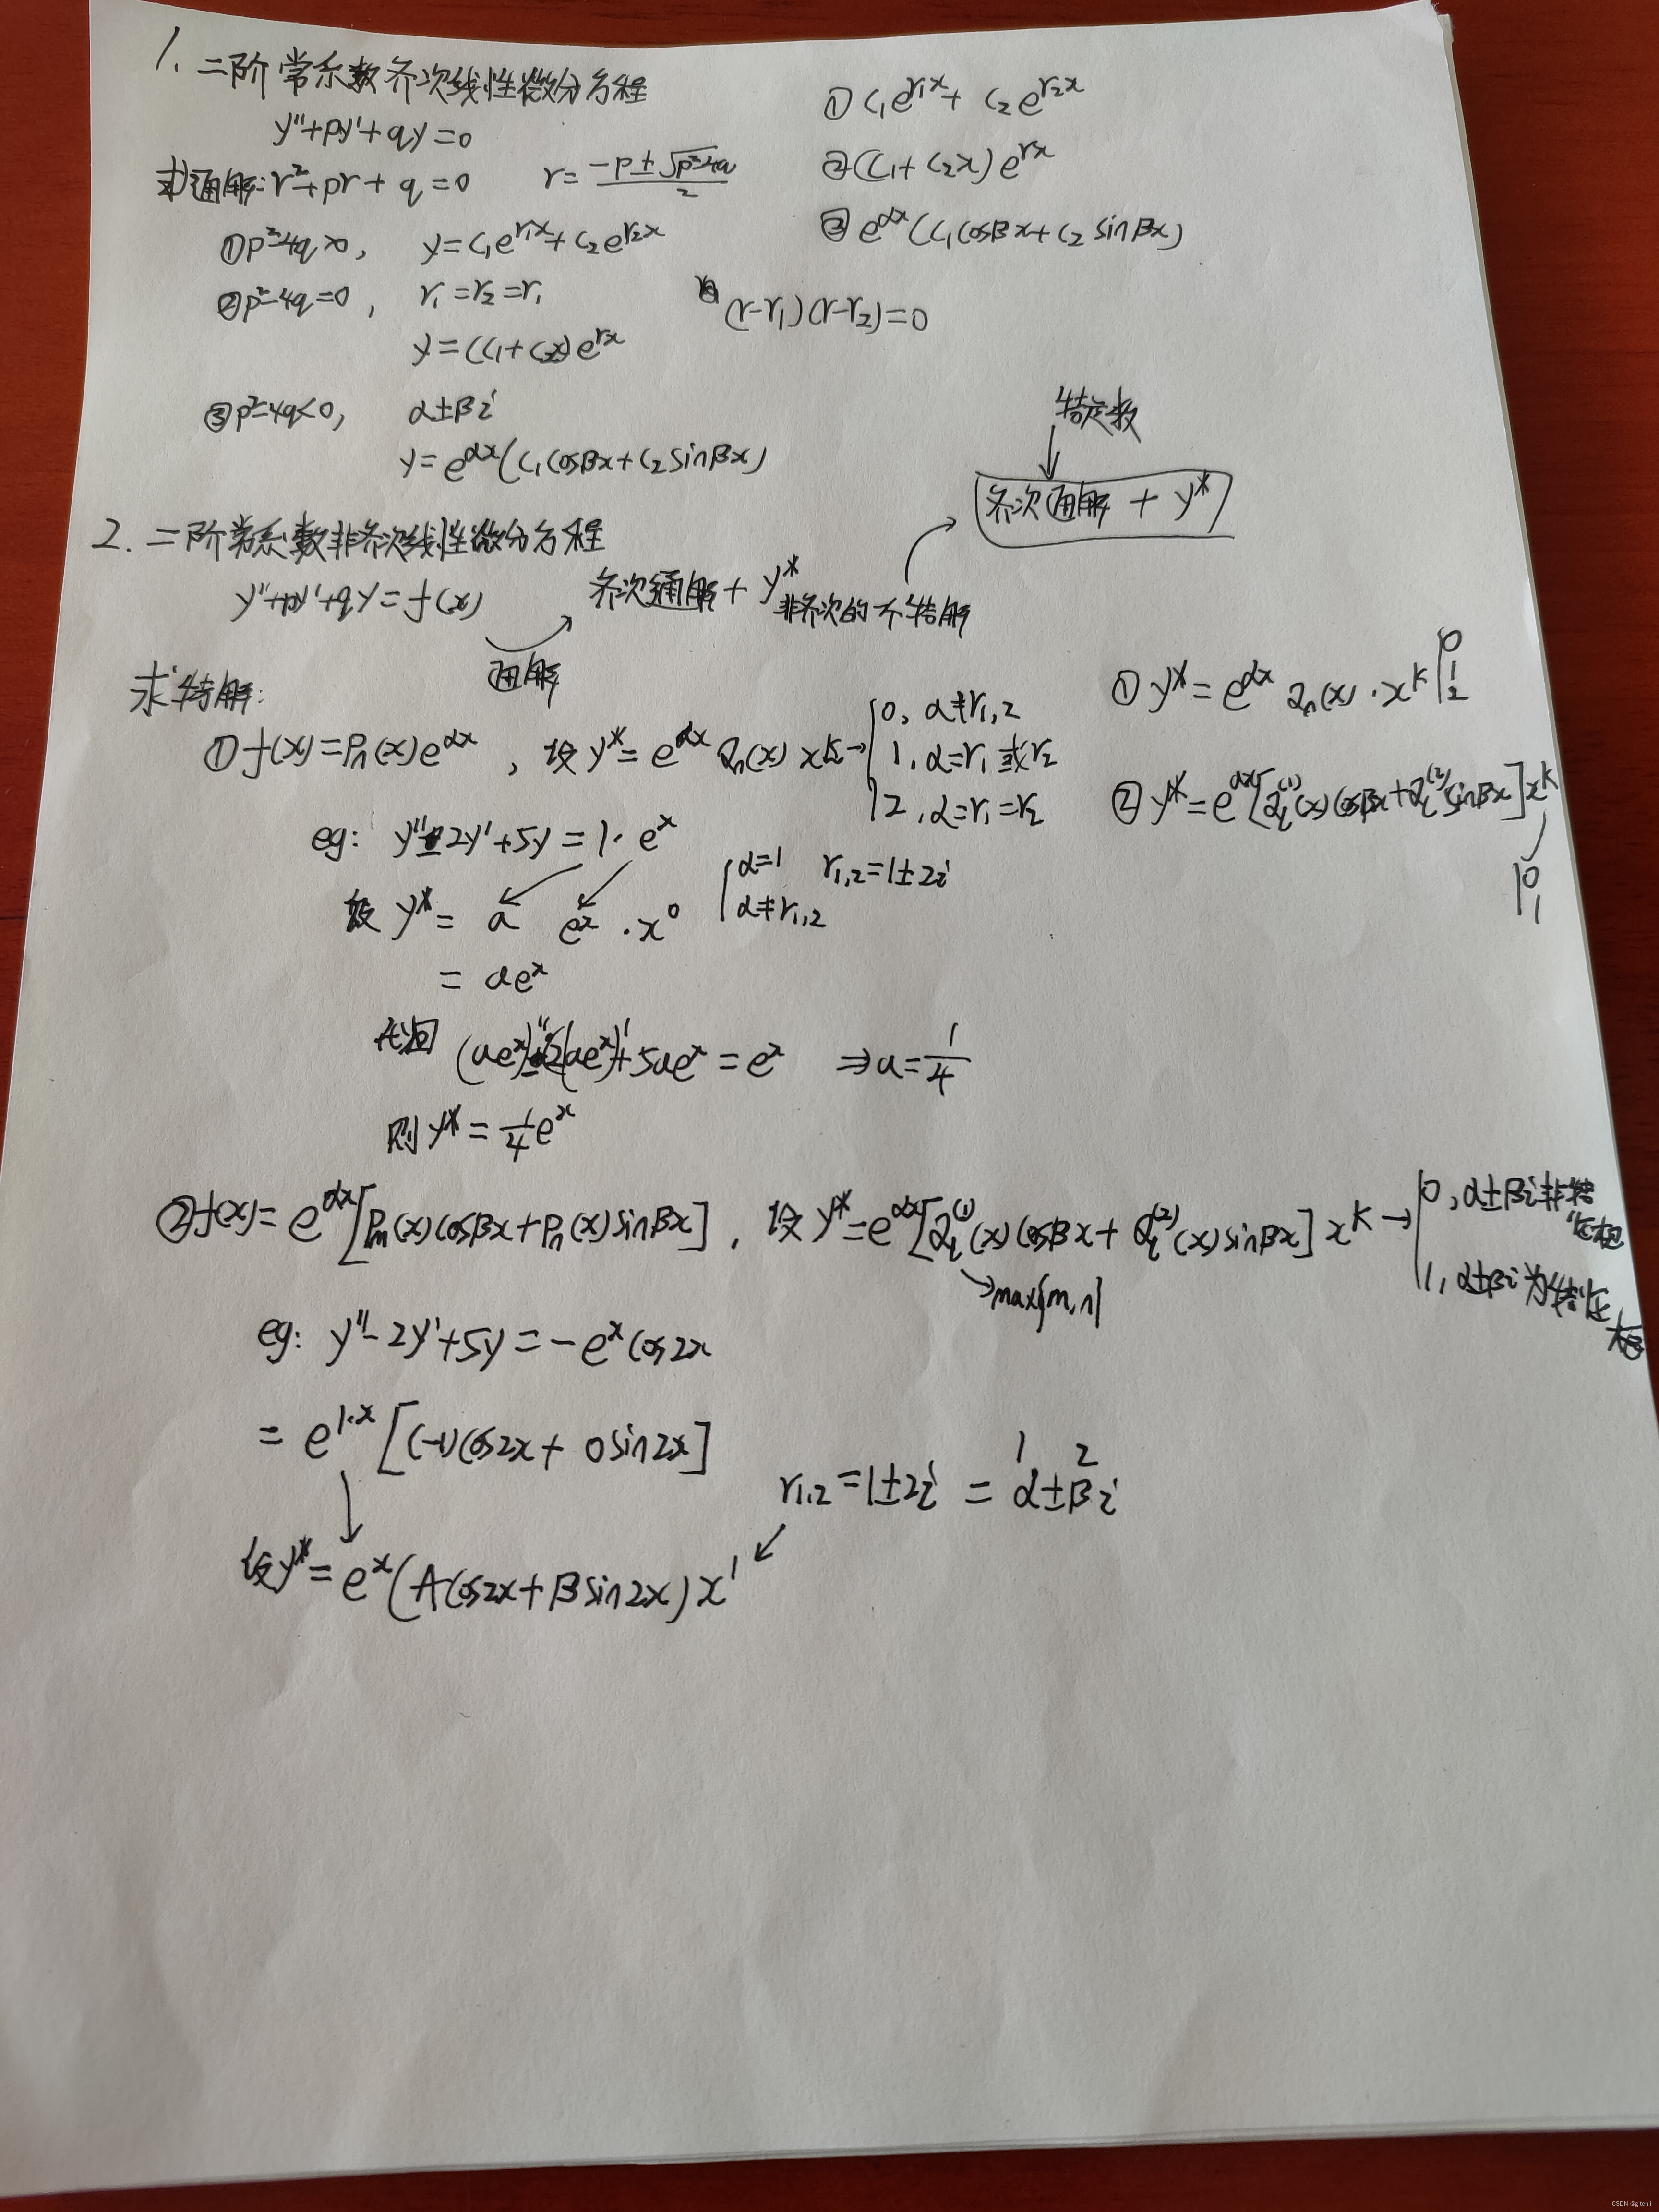 1. 二阶常系数齐次线性微分方程
y''+py'+qy=0
求通解: r²+pr+q=0 r=(-p±√(p²-4q))/2
①p²-4q>0, y=C₁e^{r₁x}+C₂e^{r₂x}
②p²-4q=0, r₁=r₂=r₁ (r-r₁)(r-r₂)=0
y=(C₁+C₂x)e^{rx}
③p²-4q<0, α±βi
y=e^{αx}(C₁cosβx+C₂sinβx)
① C₁e^{r₁x}+C₂e^{r₂x}
②(C₁+C₂x)e^{rx}
③ e^{αx}(C₁cosβx+C₂sinβx)
待定数
齐次通解 + y*
2. 二阶常系数非齐次线性微分方程
y''+py'+qy=f(x) 齐次通解+y*
非齐次的个特解
通解
求特解:
①f(x)=Pₙ(x)e^{αx}, 设y*=e^{αx}Qₙ(x)x^k→
0, α≠r₁,₂
1, α=r₁或r₂
2, α=r₁=r₂
① y*=e^{αx}Qₙ(x)·x^k 0 1 2
② y*=e^{αx}[Q_l^{(1)}(x)cosβx+Q_l^{(2)}sinβx]x^k
0
1
eg: y''-2y'+5y=1·e^x
设 y*= a e^x · x⁰ α=1 r₁,₂=1±2i
α≠r₁,₂
= ae^x
代回 (ae^x)''-2(ae^x)'+5ae^x=e^x ⇒a=1/4
则 y*=1/4e^x
②f(x)=e^{αx}[Pₘ(x)cosβx+Pₙ(x)sinβx], 设y*=e^{αx}[Q_l^{(1)}(x)cosβx+Q_l^{(2)}(x)sinβx]x^k→
0, α±βi非特征根
1, α±βi为特征根
max{m,n}
eg: y''-2y'+5y=-e^x cos2x
= e^{1·x}[(-1)cos2x+0sin2x]
1 2
r₁,₂=1±2i = α±βi
设y*=e^x(Acos2x+Bsin2x)x¹
CSDN @gitenli